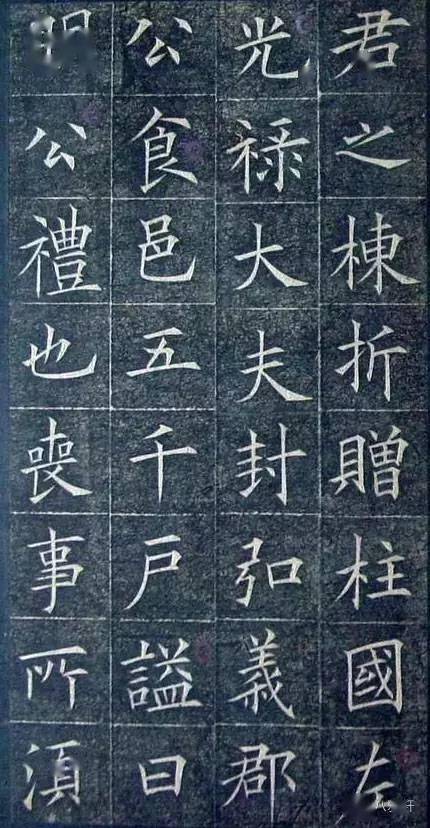 君之棟折贈柱國左
光禄大夫封弘義郡
公食邑五千户謚曰
明公禮也喪事所湏